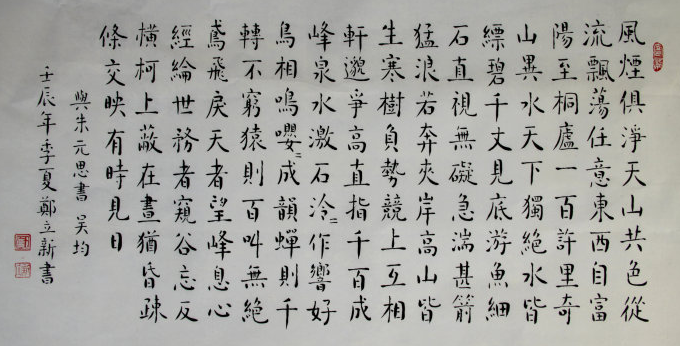 風煙俱淨天山共色從
流飄蕩任意東西自富
陽至桐廬一百許里奇
山異水天下獨絕水皆
縹碧千丈見底游魚細
石直視無礙急湍甚箭
猛浪若奔夾岸高山皆
生寒樹負勢競上互相
軒邈爭高直指千百成
峰泉水激石泠〻作響好
鳥相鳴嚶〻成韻蟬則千
轉不窮猿則百叫無絕
鳶飛戾天者望峰息心
經綸世務者窺谷忘反
橫柯上蔽在晝猶昏疎
條交映有時見日
與朱元思書 吴均
壬辰年季夏鄭立新書